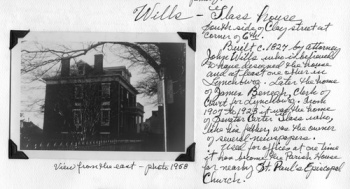 Wills - Glass house
South side of Clay street at
corner of 6th.
Built c. 1827 by attorney
John Wills who is believed
to have designed the house
and at least one other in
Lynchburg. Later the home
of James Benagh, Clerk of
Court for Lynchburg. From
1907 to 1923 it was the home
of Senator Carter Glass who,
like his father, was the owner
of several newspapers.
Used for offices at one time
it has become the Parish House
for nearby St. Paul's Episcopal
Church.
View from the east - photo 1958